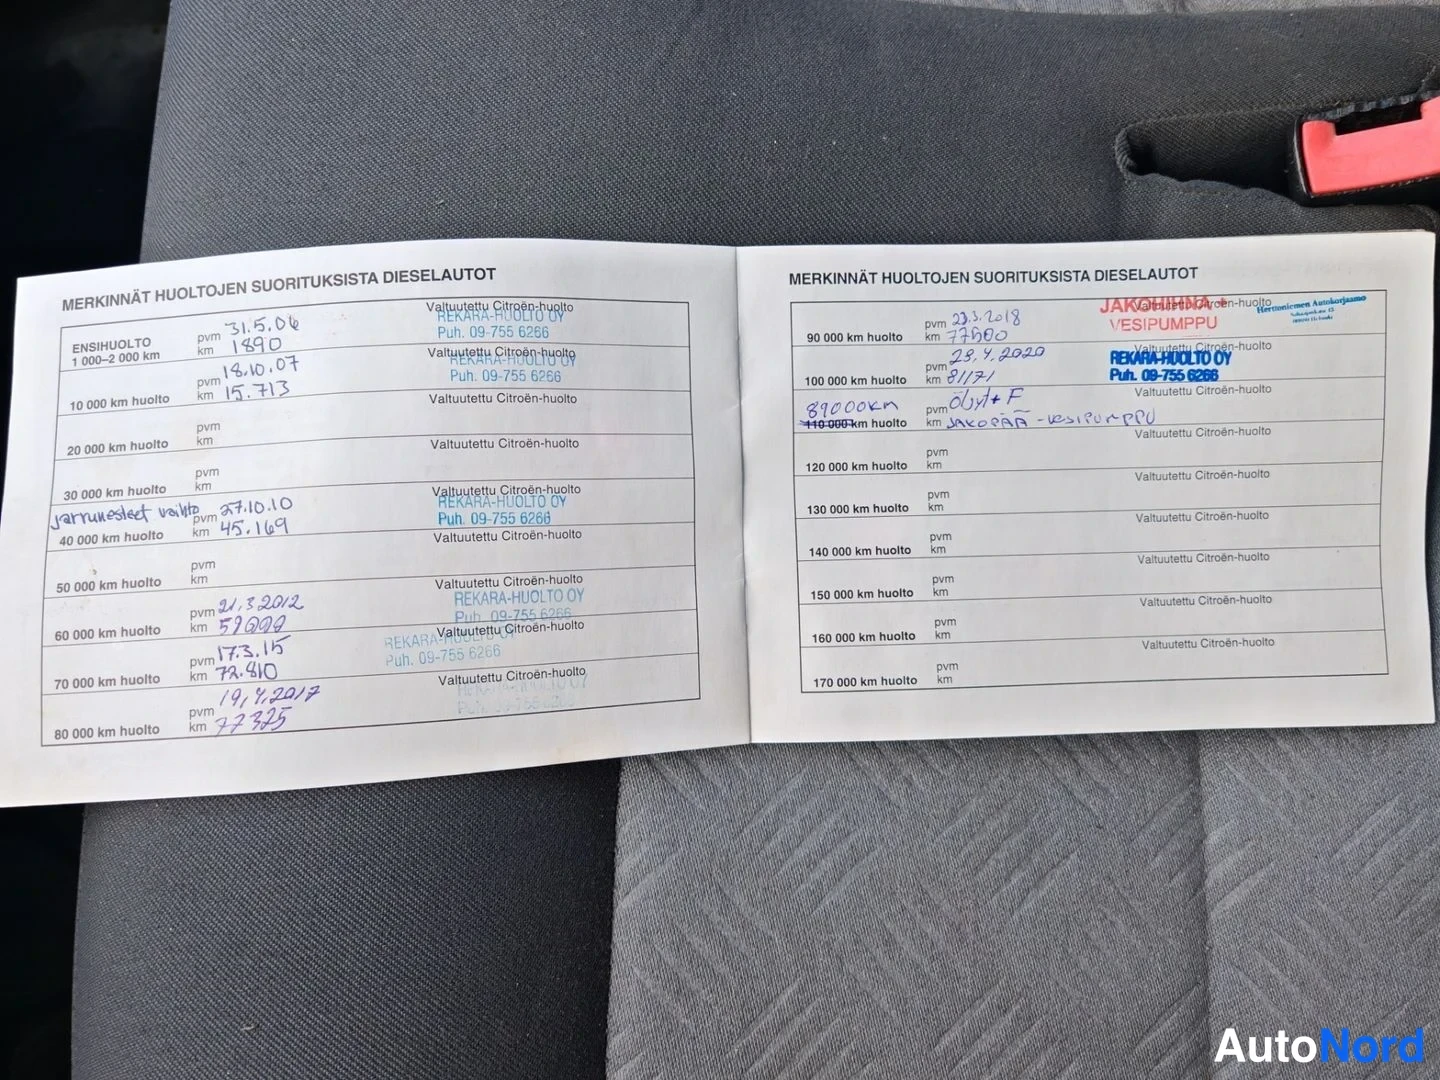 MERKINNÄT HUOLTOJEN SUORITUKSISTA DIESELAUTOT
Valtuutettu Citroën-huolto
REKARA-HUOLTO OY
Puh. 09-755 6266
ENSIHUOLTO
1 000–2 000 km
pvm 31.5.06
km 1890
Valtuutettu Citroën-huolto
REKARA-HUOLTO OY
Puh. 09-755 6266
10 000 km huolto
pvm 18.10.07
km 15.713
Valtuutettu Citroën-huolto
20 000 km huolto
pvm
km
Valtuutettu Citroën-huolto
30 000 km huolto
pvm
km
Valtuutettu Citroën-huolto
REKARA-HUOLTO OY
Puh. 09-755 6266
jarrunesteet vaihto
40 000 km huolto
pvm 27.10.10
km 45.169
Valtuutettu Citroën-huolto
50 000 km huolto
pvm
km
Valtuutettu Citroën-huolto
REKARA-HUOLTO OY
Puh. 09-755 6266
60 000 km huolto
pvm 21.3.2012
km
Valtuutettu Citroën-huolto
REKARA-HUOLTO OY
Puh. 09-755 6266
70 000 km huolto
pvm 17.3.15
km 72.810
Valtuutettu Citroën-huolto
REKARA-HUOLTO OY
Puh. 09-755 6266
80 000 km huolto
pvm 19.4.2017
km 77325
MERKINNÄT HUOLTOJEN SUORITUKSISTA DIESELAUTOT
Valtuutettu Citroën-huolto
JAKOHIHNA +
VESIPUMPPU
Herttoniemen Autokorjaamo
90 000 km huolto
pvm 23.3.2018
km 77500
Valtuutettu Citroën-huolto
REKARA-HUOLTO OY
Puh. 09-755 6266
100 000 km huolto
pvm 29.4.2020
km 81171
Valtuutettu Citroën-huolto
89000km
110 000 km huolto
pvm Öljyt+F
km JAKOPÄÄ -VESIPUMPPU
Valtuutettu Citroën-huolto
120 000 km huolto
pvm
km
Valtuutettu Citroën-huolto
130 000 km huolto
pvm
km
Valtuutettu Citroën-huolto
140 000 km huolto
pvm
km
Valtuutettu Citroën-huolto
150 000 km huolto
pvm
km
Valtuutettu Citroën-huolto
160 000 km huolto
pvm
km
Valtuutettu Citroën-huolto
170 000 km huolto
pvm
km
AutoNord